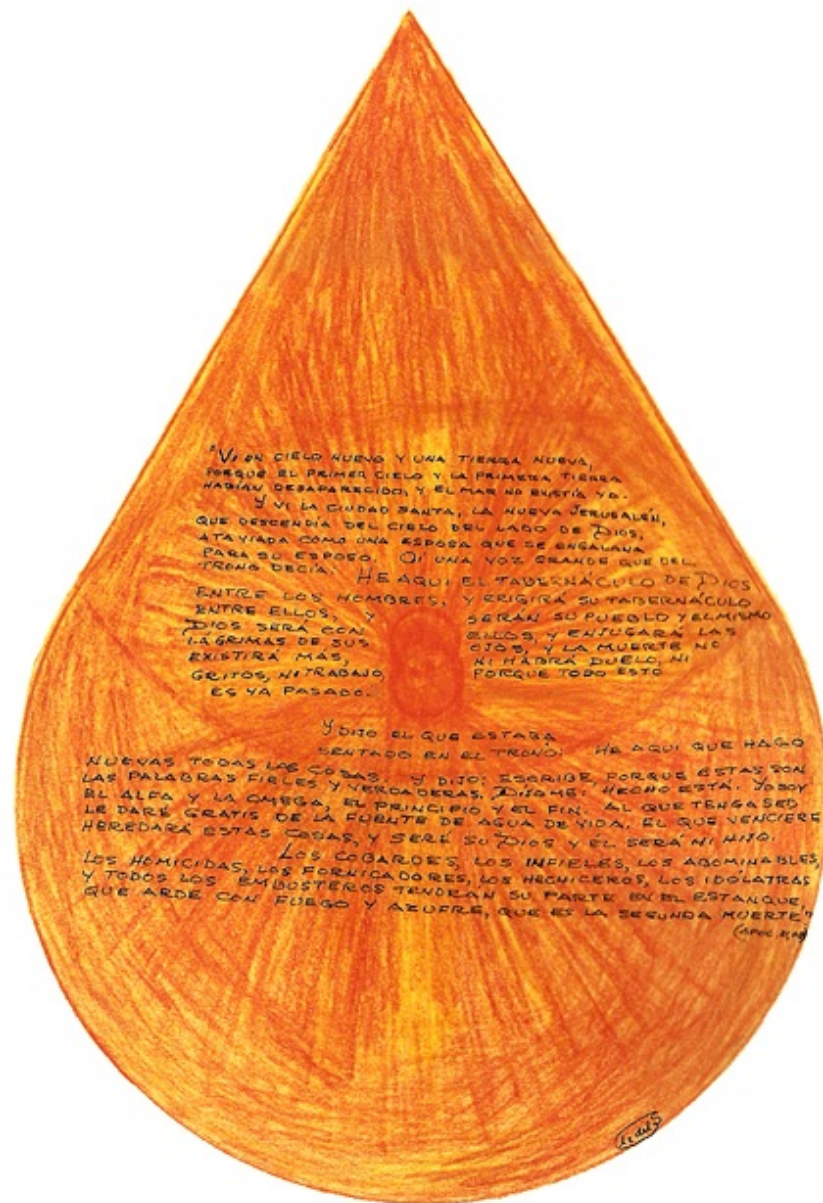 "VI UN CIELO NUEVO Y UNA TIERRA NUEVA,
PORQUE EL PRIMER CIELO Y LA PRIMERA TIERRA
HABIAN DESAPARECIDO, Y EL MAR NO EXISTÍA YA.
Y VI LA CIUDAD SANTA, LA NUEVA JERUSALÉN,
QUE DESCENDÍA DEL CIELO DEL LADO DE DIOS,
ATAVIADA COMO UNA ESPOSA QUE SE ENGALANA
PARA SU ESPOSO. OÍ UNA VOZ GRANDE QUE DEL
TRONO DECÍA: HE AQUI EL TABERNÁCULO DE DIOS
ENTRE LOS HOMBRES, Y ERIGIRÁ SU TABERNÁCULO
ENTRE ELLOS, Y SERÁN SU PUEBLO Y EL MISMO
DIOS SERÁ CON ELLOS, Y ENJUGARÁ LAS
LÁGRIMAS DE SUS OJOS, Y LA MUERTE NO
EXISTIRÁ MÁS, NI HABRÁ DUELO, NI
GRITOS, NI TRABAJO, PORQUE TODO ESTO
ES YA PASADO.
Y DIJO EL QUE ESTABA
SENTADO EN EL TRONO: HE AQUI QUE HAGO
NUEVAS TODAS LAS COSAS. Y DIJO: ESCRIBE, PORQUE ESTAS SON
LAS PALABRAS FIELES Y VERDADERAS. DÍJOME: HECHO ESTÁ. YO SOY
EL ALFA Y LA OMEGA, EL PRINCIPIO Y EL FIN. AL QUE TENGA SED
LE DARÉ GRATIS DE LA FUENTE DE AGUA DE VIDA. EL QUE VENCIERE
HEREDARÁ ESTAS COSAS, Y SERÉ SU DIOS Y ÉL SERÁ MI HIJO.
LOS COBARDES, LOS INFIELES, LOS ABOMINABLES,
LOS HOMICIDAS, LOS FORNICADORES, LOS HECHICEROS, LOS IDÓLATRAS
Y TODOS LOS EMBUSTEROS TENDRÁN SU PARTE EN EL ESTANQUE,
QUE ARDE CON FUEGO Y AZUFRE, QUE ES LA SEGUNDA MUERTE"
(APOC.